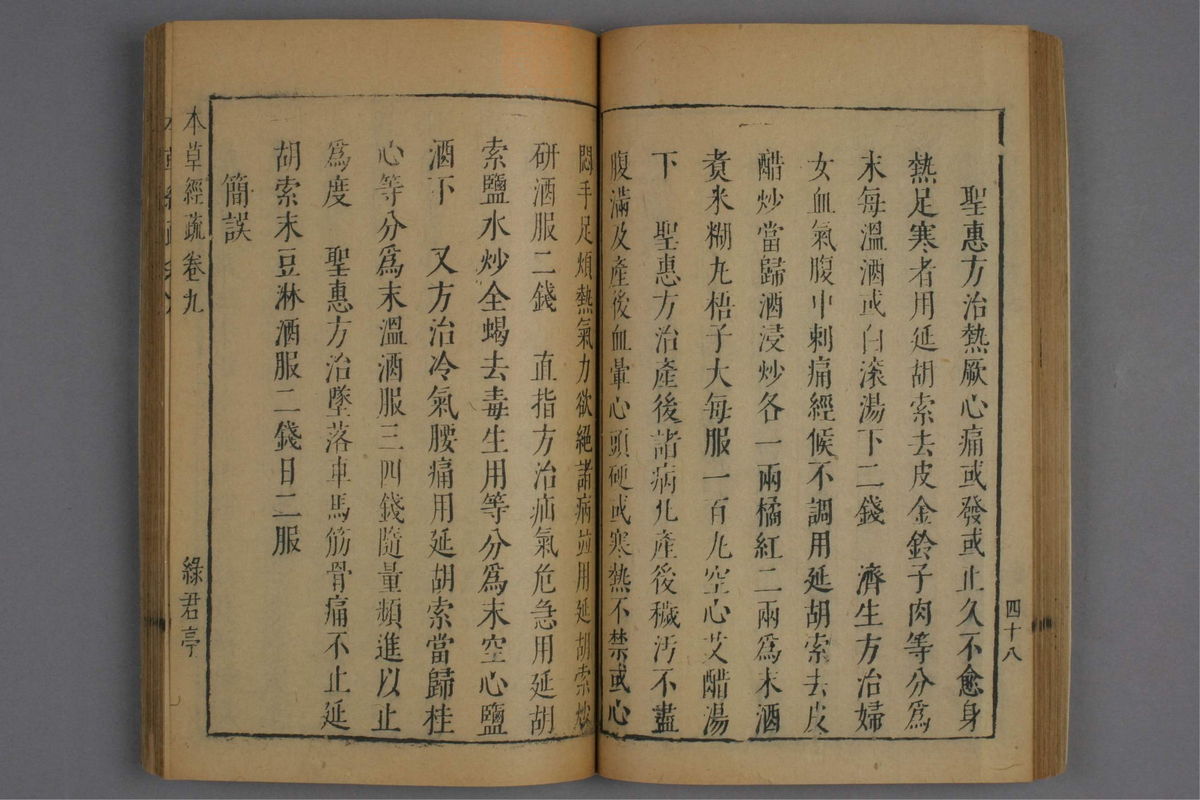 四十八
聖惠方治熱厥心痛或發或止久不愈身
熱足寒者用延胡索去皮金鈴子肉等分爲
末每溫酒或白滾湯下二錢　濟生方治婦
女血氣腹中刺痛經候不調用延胡索去皮
醋炒當歸酒浸炒各一兩橘紅二兩爲末酒
煑米糊丸梧子大每服一百丸空心艾醋湯
下　聖惠方治產後諸病凡產後穢汚不盡
腹滿及產後血暈心頭硬或寒熱不禁或心
悶手足煩熱氣力欲絕諸病並用延胡索炒
研酒服二錢　直指方治疝氣危急用延胡
索鹽水炒全蝎去毒生用等分爲末空心鹽
酒下　又方治冷氣腰痛用延胡索當歸桂
心等分爲末溫酒服三四錢隨量頻進以止
爲度　聖惠方治墜落車馬筋骨痛不止延
胡索末豆淋酒服二錢日二服
簡誤
本草經疏卷九
綠君亭